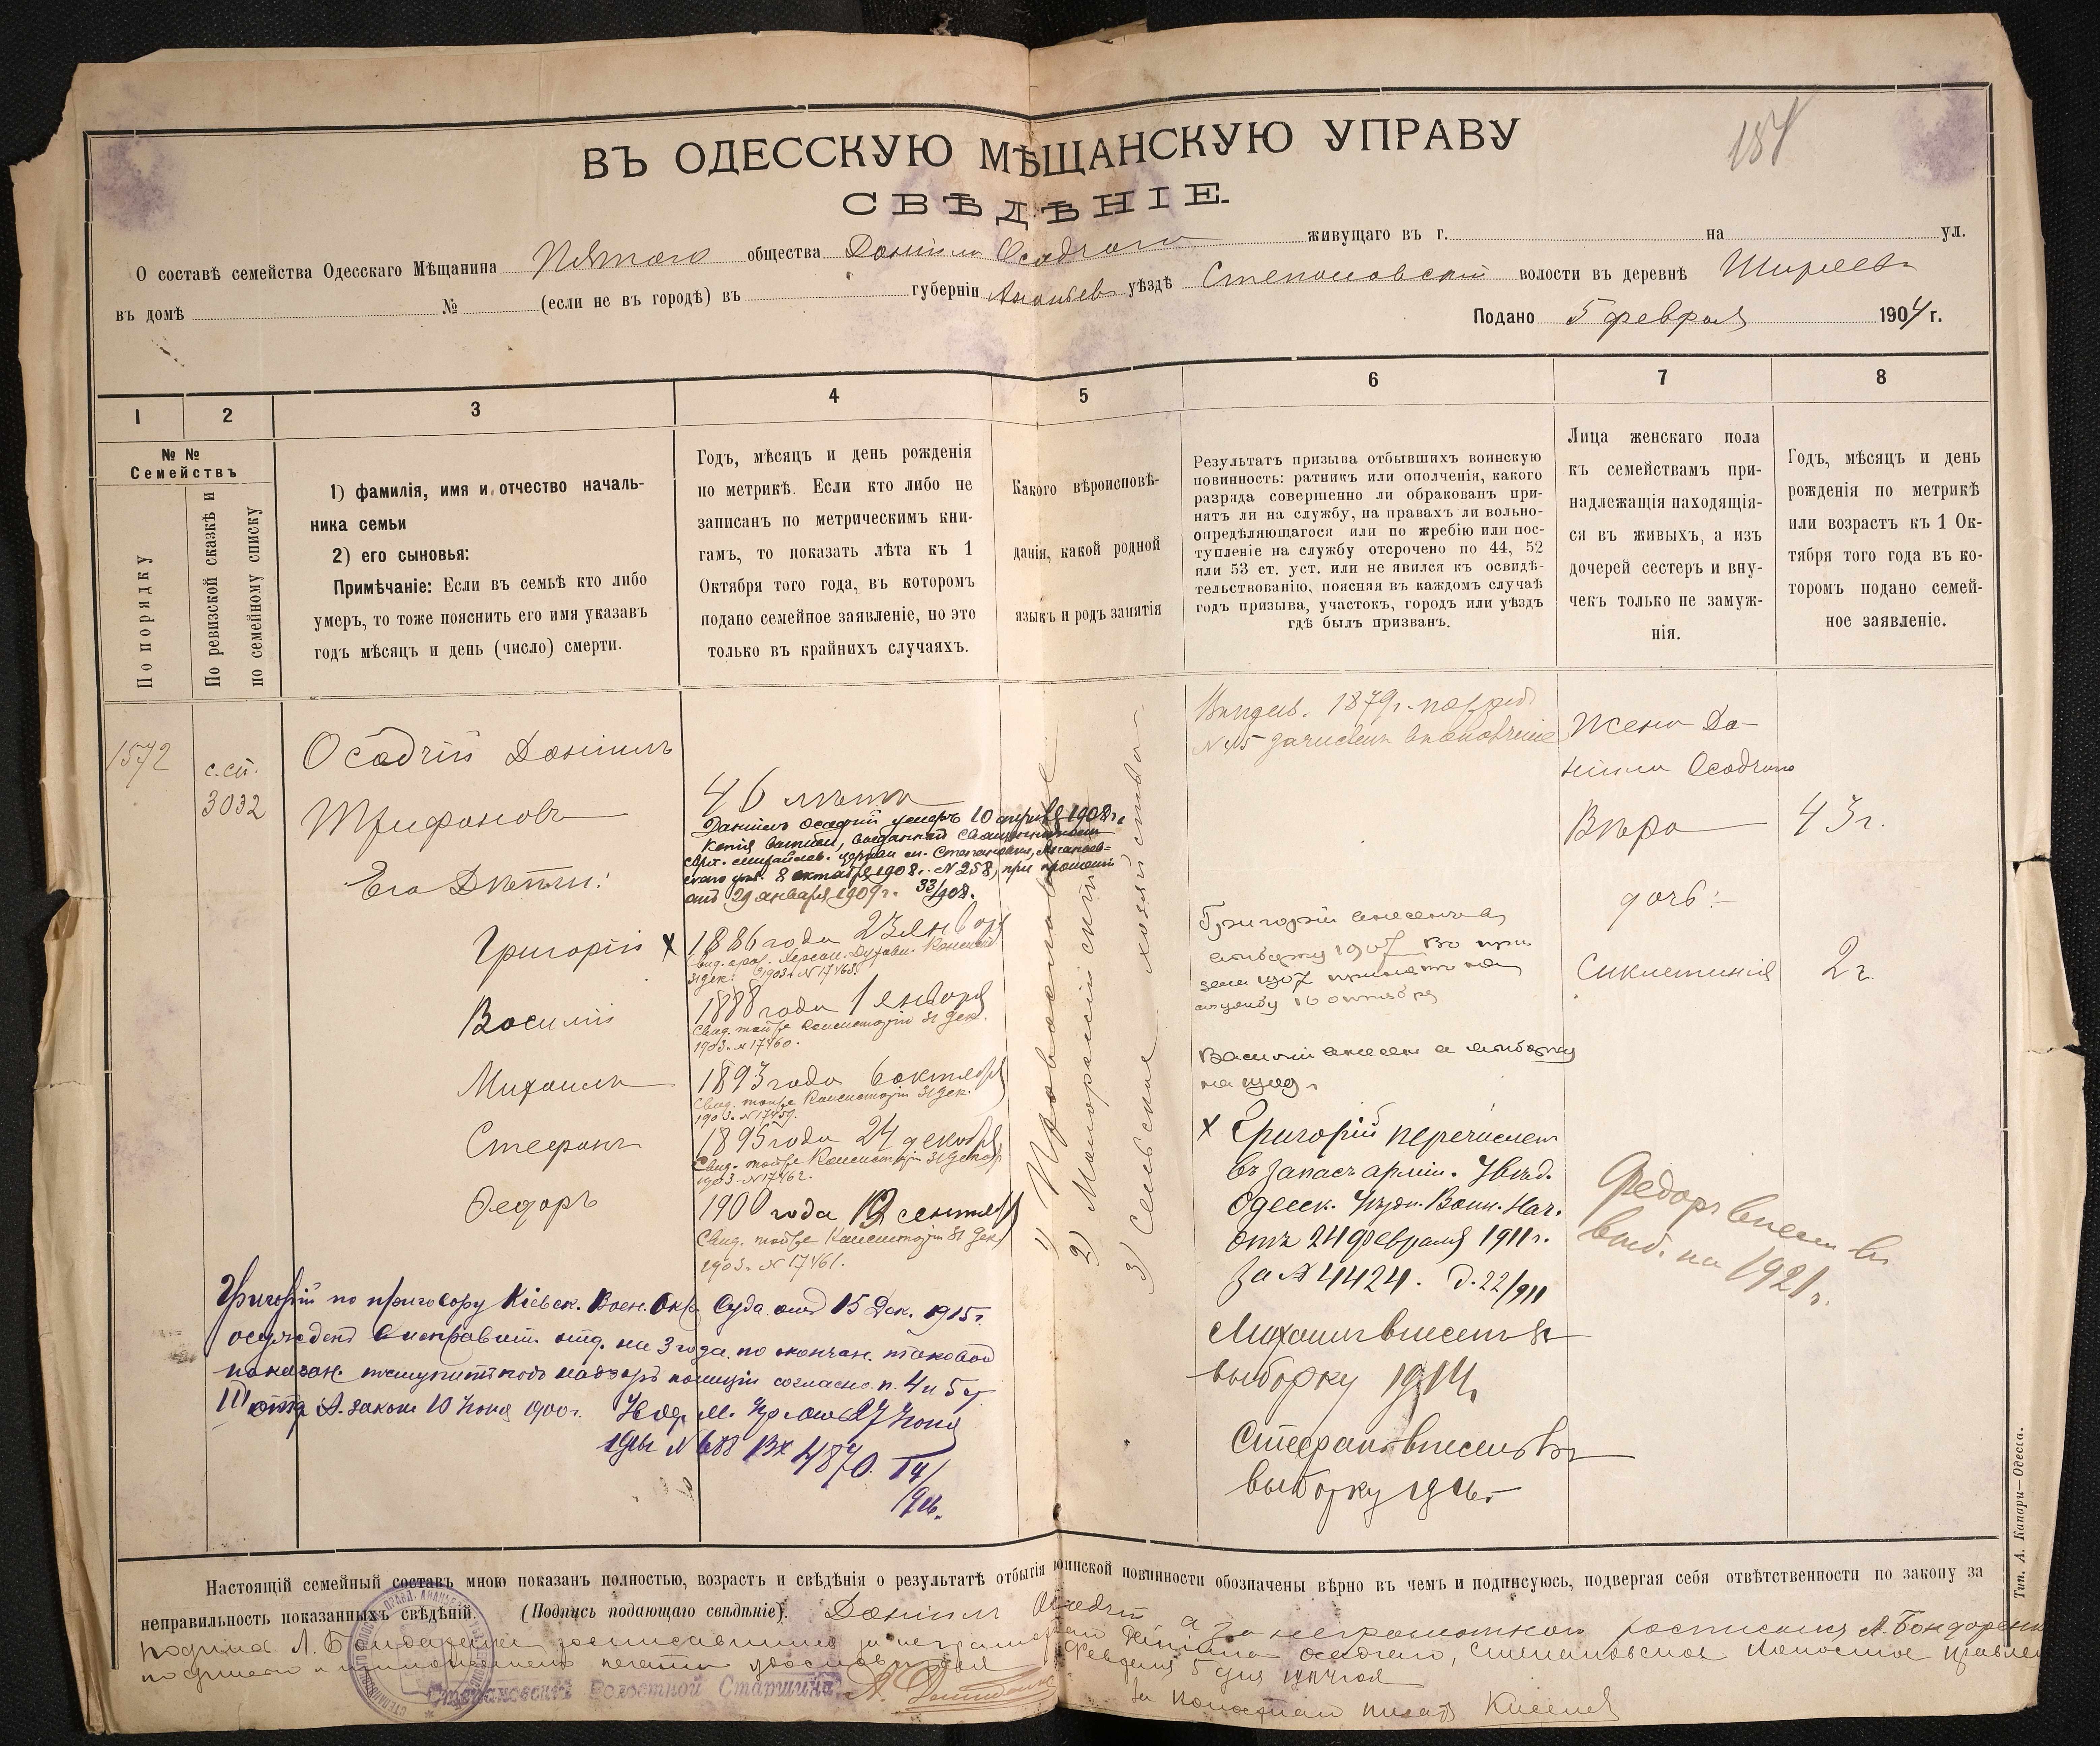 184
ВЪ ОДЕССКУЮ МѢЩАНСКУЮ УПРАВУ
СВѢДѢНІЕ.
О составѣ семейства Одесскаго Мѣщанина Пятого общества Данiила Осадчаго живущаго въ г. на ул.
въ домѣ № (если не въ городѣ) въ губерніи Ананьев уѣздѣ Степановской волости въ деревнѣ Ширяевѣ
Подано 5 февраля 1904 г.
1 2 3 4 5 6 7 8
№ №
Семействъ
По порядку
По ревизской сказкѣ и
по семейному списку
1) фамилія, имя и отчество началь-
ника семьи
2) его сыновья:
Примѣчаніе: Если въ семьѣ кто либо
умеръ, то тоже пояснить его имя указавъ
годъ мѣсяцъ и день (число) смерти.
Годъ, мѣсяцъ и день рожденія
по метрикѣ. Если кто либо не
записанъ по метрическимъ кни-
гамъ, то показать лѣта къ 1
Октября того года, въ которомъ
подано семейное заявленіе, но это
только въ крайнихъ случаяхъ.
Какого вѣроисповѣ-
данія, какой родной
языкъ и родъ занятія
Результатъ призыва отбывшихъ воинскую
повинность: ратникъ или ополченія, какого
разряда совершенно ли обракованъ при-
нятъ ли на службу, на правахъ ли вольно-
опредѣляющагося или по жребію или пос-
тупленіе на службу отсрочено по 44, 52
или 53 ст. уст. или не явился къ освидѣ-
тельствованію, поясняя въ каждомъ случаѣ
годъ призыва, участокъ, городъ или уѣздъ
гдѣ былъ призванъ.
Лица женскаго пола
къ семействамъ при-
надлежащія находящія-
ся въ живыхъ, а изъ
дочерей сестеръ и вну-
чекъ только не замуж-
нія.
Годъ, мѣсяцъ и день
рожденія по метрикѣ
или возрастъ къ 1 Ок-
тября того года въ ко-
торомъ подано семей-
ное заявленіе.
1572
с.сп.
3032
Осадчій Даніилъ
Трифоновъ
Его Дѣти:
Григорій х
Василій
Михаилъ
Стефанъ
Ѳедоръ
46 лѣтъ
Даніилъ Осадчій умеръ 10 апрѣля 1908 г.
Копія выписи, выданная Священникомъ
Арх. Михайлов. церкви м. Степановки, Ананьев-
скаго уѣз. 8 октября 1908 г. № 258, при прошеніи
отъ 29 января 1909 г. 33/908.
1886 года 23 января
Свид. Херсон. Духовн. Консист.
31 дек. 1903 г. № 17463.
1888 года 1 января
Свид. той же Консисторіи 31 дек.
1903 г. № 17460.
1893 года 6 октября
Свид. той же Консисторіи 31 дек.
1903 г. № 17459.
1895 года 24 декабря
Свид. той же Консисторіи 31 декаб.
1903 г. № 17462.
1900 года 12 сентября
Свид. той же Консисторіи 31 дек.
1903 г. № 17461.
1) Православное
2) Малорасійскій
3) Сельское хозяйство
1879 г.
№ 415 зачисленъ въ ополченіе
Григорій внесенъ въ
выборку 1907 Во при
зыв 1907 принятъ на
службу 16 октября
Василій внесен в выборку
на 1909 г.
х Григорій перечисленъ
въ запасъ арміи. Увѣд.
Одесск. Уѣздн. Воин. Нач.
отъ 24 Февраля 1911 г.
за № 4424. д. 22/911
Михаилъ внесенъ въ
выборку 1914 г.
Стефанъ внесенъ въ
выборку 1916 г.
Жена Да-
нiила Осадчаго
Вѣра 43 г.
дочь:
Сиклетинія 2 г.
Федоръ внесен въ
выб. на 1921 г.
Григорій по приговору Кіевск. Воен. Окр. Суда отъ 15 Дек. 1915 г.
осужденъ въ исправит. отд. на 3 года по окончан. таковой
наказан. поступитъ подъ надзоръ полиціи согласно п. 4 и 5 ст.
III отд. А. закона 10 Іюня 1900 г. Увѣд. М. Упр. отъ 27 Іюня
1916 г. № 688 Вх 4870.
Настоящій семейный составъ мною показанъ полностью, возрастъ и свѣдѣнія о результатѣ отбытія воинской повинности обозначены вѣрно въ чемъ и подписуюсь, подвергая себя отвѣтственности по закону за
неправильность показанныхъ свѣдѣній. (Подпись подающаго свѣдѣніе). Даніилъ Осадчій а за неграмотнаго росписался А. Бондаренко
Подпись А. Бондаренко росписавшагося за неграмотнаго Даніила Осадчаго, Степановское Волостное Правленіе
подписью и приложеніемъ печати удостовѣряетъ Февраля 5 дня 1904 года
Степановскій Волостной Старшина
За Волостнаго писаря Киселев
Тип. А. Капари—Одесса.